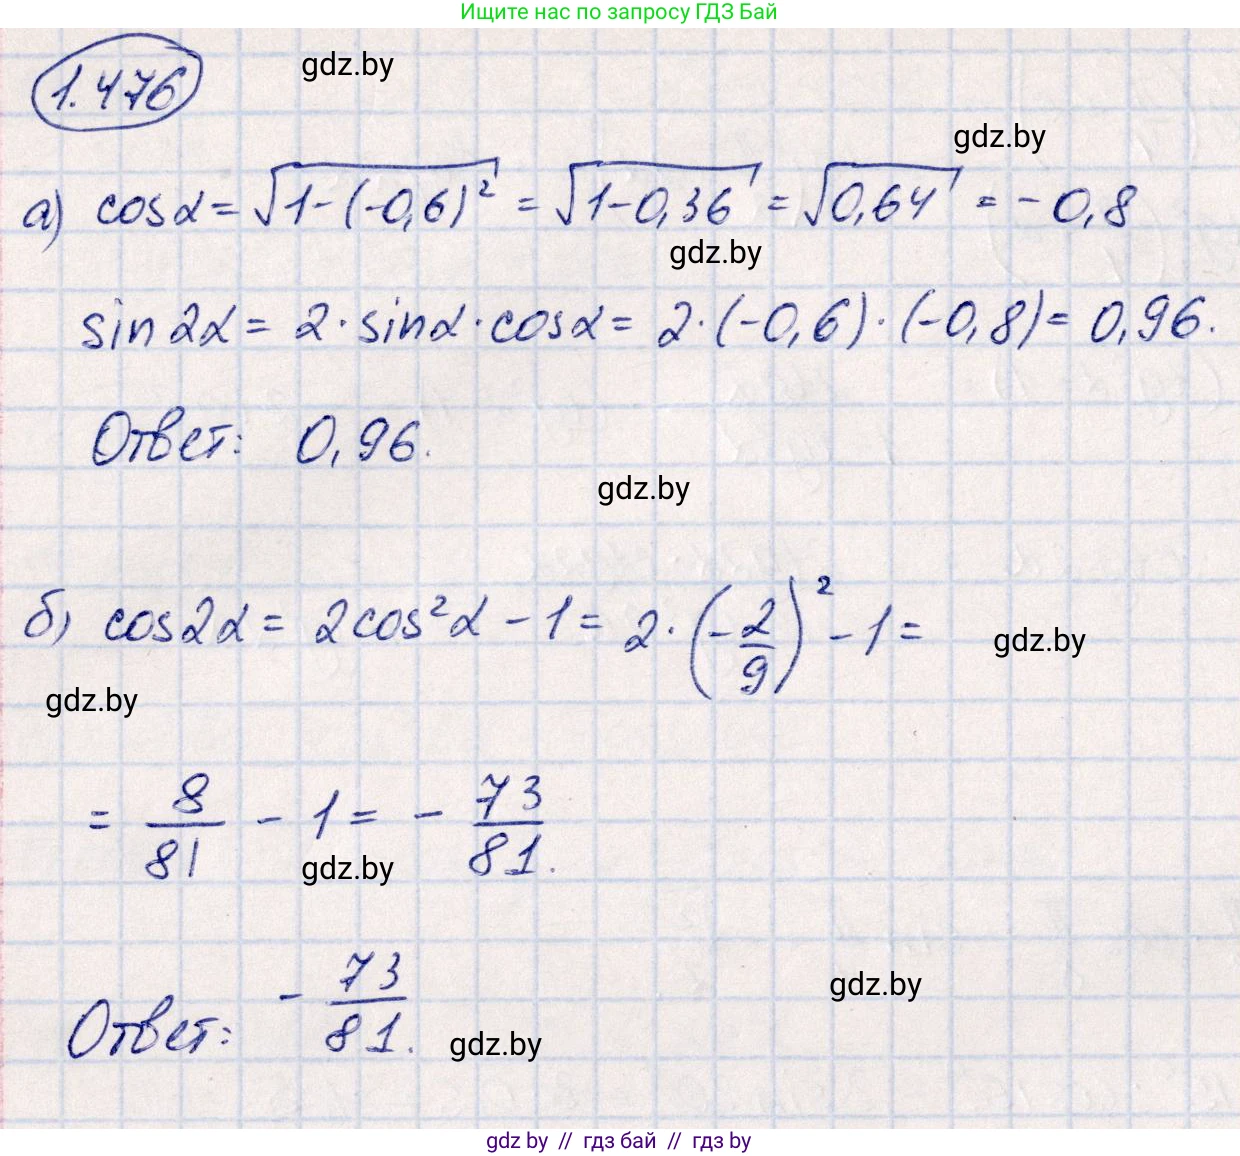 Ищите нас по запросу ГДЗ Бай
1.476
gdz.by
gdz.by
а) cosα = √(1-(-0,6)²) = √(1-0,36) = √(0,64) = -0,8
gdz.by
sin2α = 2·sinα·cosα = 2·(-0,6)·(-0,8) = 0,96.
Ответ: 0,96.
gdz.by
б) cos2α = 2cos²α - 1 = 2·(-2/9)² - 1 =
gdz.by
gdz.by
= 8/81 - 1 = - 73/81.
gdz.by
Ответ: - 73/81.
gdz.by
gdz.by
gdz by // гдз бай // гдз by